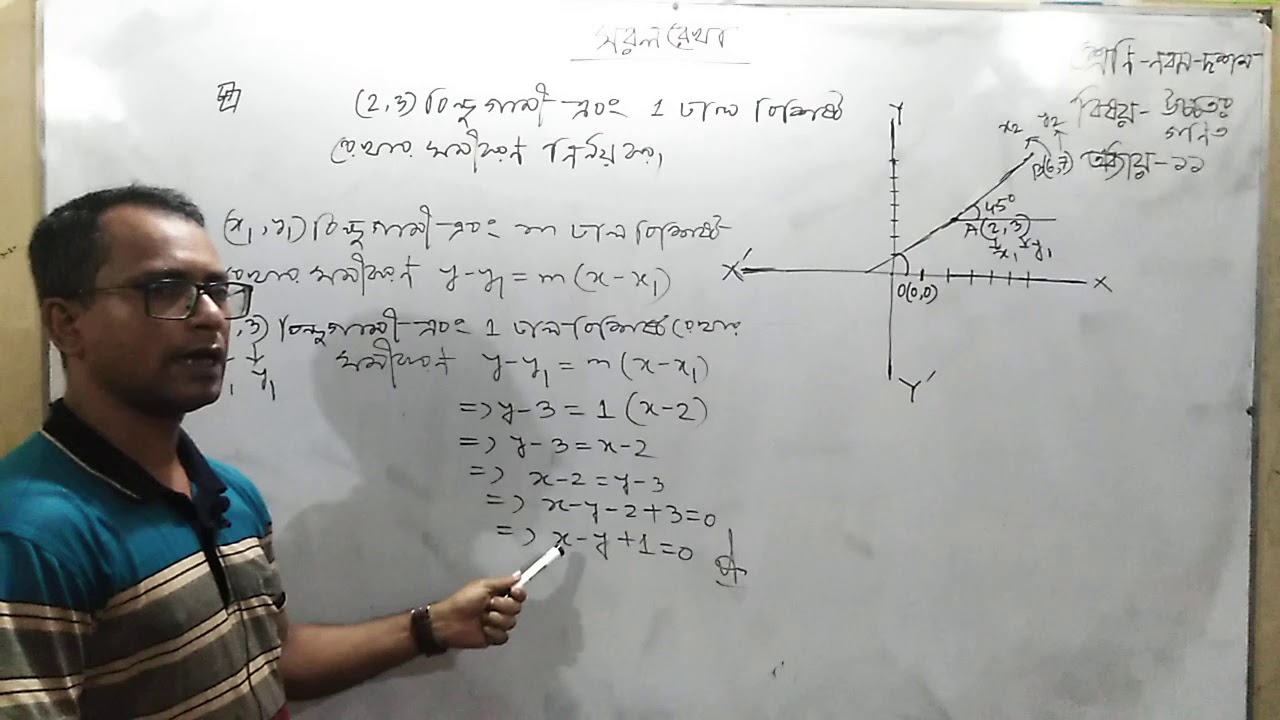 সরলরেখা
শ্রেণি-নবম-দশম
বিষয়- উচ্চতর
গণিত
অধ্যায়-১১
(2,3) বিন্দুগামী এবং 1 ঢাল বিশিষ্ট
রেখার সমীকরণ নির্ণয় কর।
(x₁,y₁) বিন্দুগামী এবং m ঢাল বিশিষ্ট
রেখার সমীকরণ y-y₁ = m(x-x₁)
,3) বিন্দুগামী এবং 1 ঢাল বিশিষ্ট রেখার
₁ y₁
সমীকরণ y-y₁ = m(x-x₁)
=> y-3 = 1(x-2)
=> y-3 = x-2
=> x-2 = y-3
=> x-y-2+3=0
=> x-y+1=0
Y
x₂ y₂
B(6,7)
45°
A(2,3)
x₁ y₁
X′
X
O(0,0)
Y′